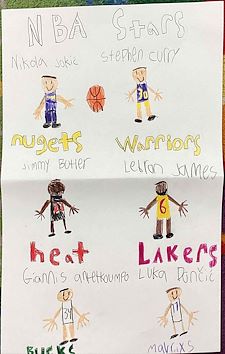 NBA Stars
Nikola Jokic Stephen Curry
30
nugets Warriors
Jimmy Butler LeBron James
6
heat LAKERS
Giannis antetkoumpo Luka Dončić
34 1
BUCKS mavrixs